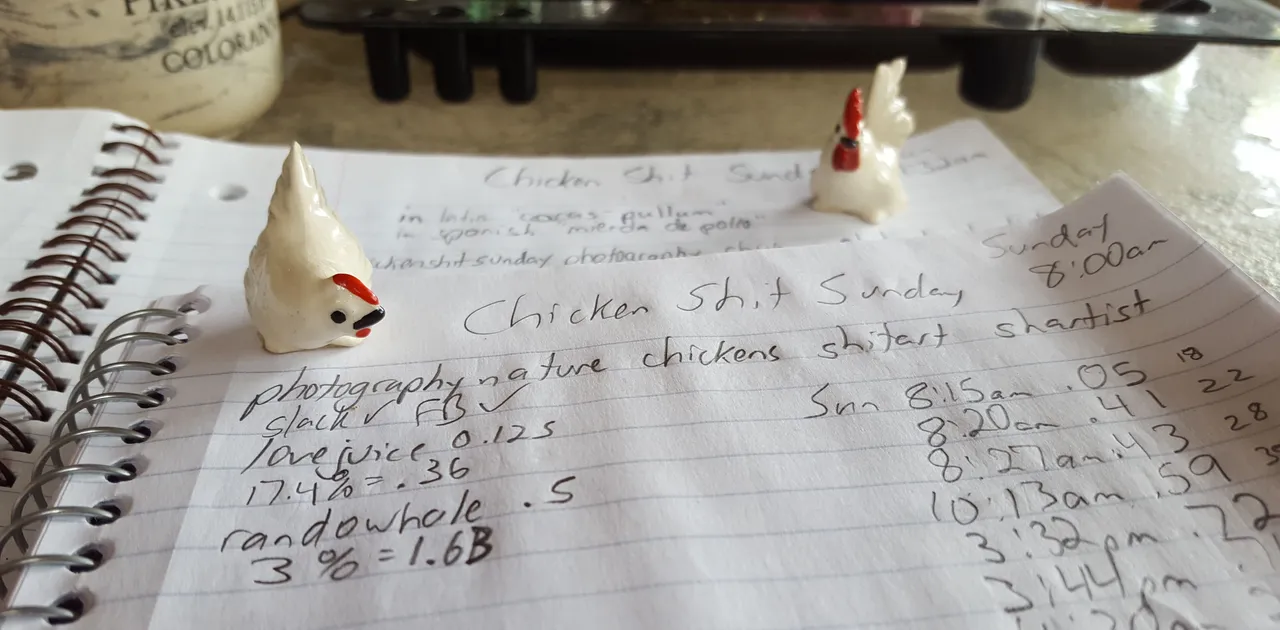 COLORAN
Chicken Shit Sund
in latin "cacas-gullum"
in spanish "mierda de pollo"
sunday photography
Sunday
8:00am
Chicken Shit Sunday
photography nature chickens shitart shartist
slack ✓ FB ✓
lovejuice 0.125
17.4% = .36
randowhale .5
3% = 1.6B
Sun 8:15am .05 18
8:20am .41 22
8:27am .43 28
10:13am .59
3:32pm .72
3:44pm